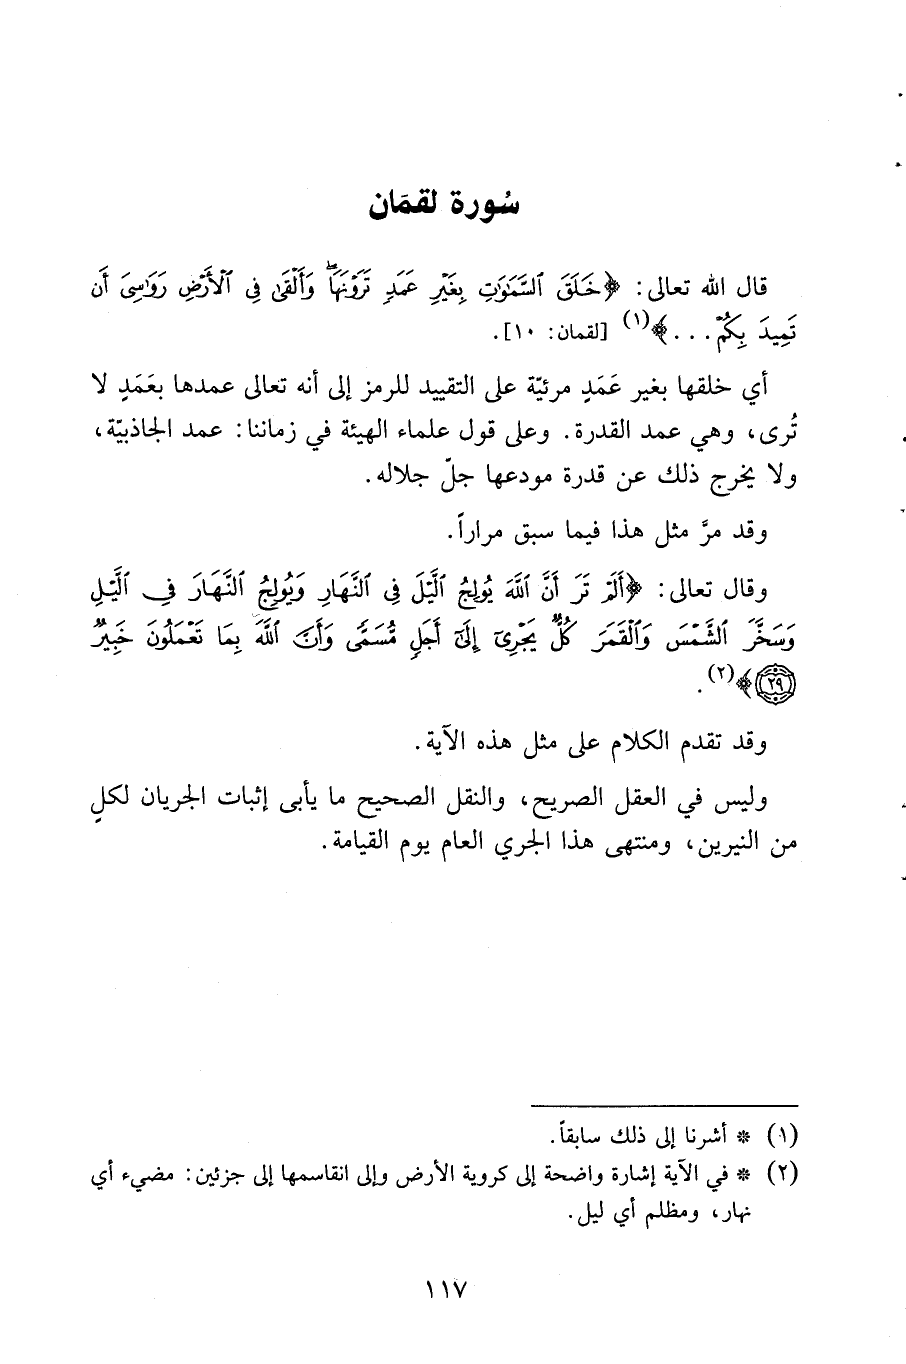 سُورة لقمَان
قال الله تعالى: ﴿خَلَقَ ٱلسَّمَٰوَٰتِ بِغَيْرِ عَمَدٍ تَرَوْنَهَاۖ وَأَلْقَىٰ فِى ٱلْأَرْضِ رَوَٰسِىَ أَن
تَمِيدَ بِكُمْ...﴾(١) [لقمان: ١٠].
أي خلقها بغير عَمَدٍ مرئيّة على التقييد للرمز إلى أنه تعالى عمدها بعَمَدٍ لا
تُرى، وهي عمد القدرة. وعلى قول علماء الهيئة في زماننا: عمد الجاذبيّة،
ولا يخرج ذلك عن قدرة مودعها جلّ جلاله.
وقد مرَّ مثل هذا فيما سبق مراراً.
وقال تعالى: ﴿أَلَمْ تَرَ أَنَّ ٱللَّهَ يُولِجُ ٱلَّيْلَ فِى ٱلنَّهَارِ وَيُولِجُ ٱلنَّهَارَ فِى ٱلَّيْلِ
وَسَخَّرَ ٱلشَّمْسَ وَٱلْقَمَرَ كُلٌّ يَجْرِىٓ إِلَىٰٓ أَجَلٍ مُّسَمًّى وَأَنَّ ٱللَّهَ بِمَا تَعْمَلُونَ خَبِيرٌ
٢٩﴾(٢).
وقد تقدم الكلام على مثل هذه الآية.
وليس في العقل الصريح، والنقل الصحيح ما يأبى إثبات الجريان لكلٍ
من النيرين، ومنتهى هذا الجري العام يوم القيامة.
(١) * أشرنا إلى ذلك سابقاً.
(٢) * في الآية إشارة واضحة إلى كروية الأرض وإلى انقاسمها إلى جزئين: مضيء أي
نهار، ومظلم أي ليل.
١١٧